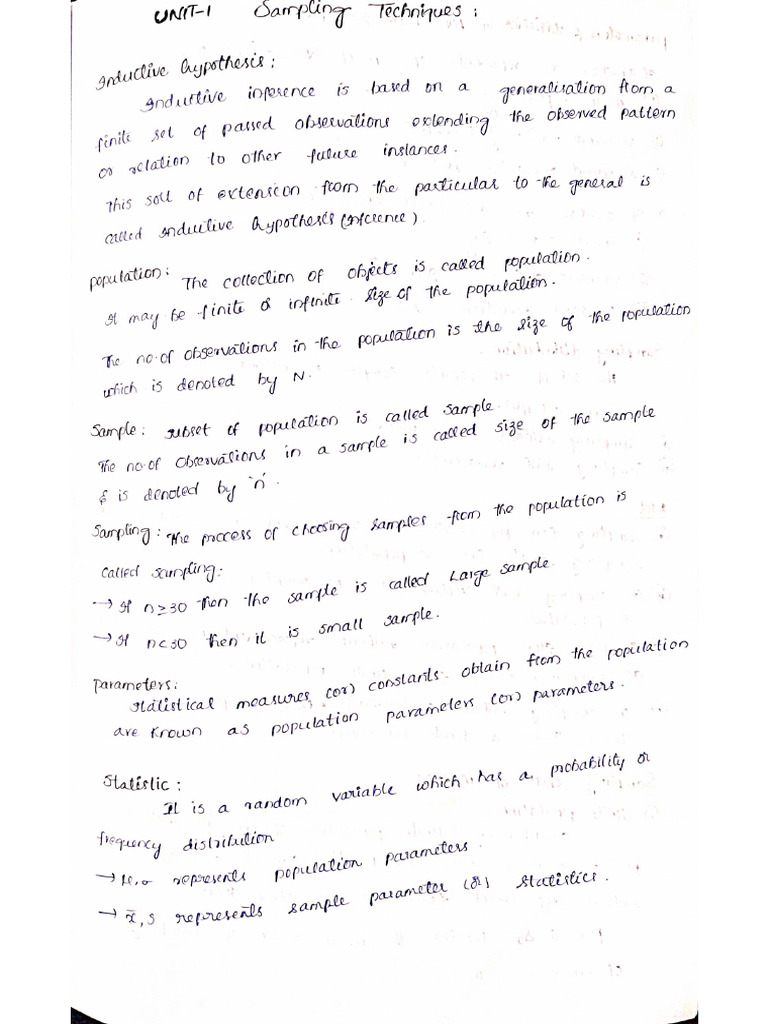 UNIT-1 Sampling Techniques:
Inductive hypothesis:
Inductive inference is based on a generalisation from a
finite set of passed observations extending the observed pattern
or relation to other future instances.
This sort of extension from the particular to the general is
called Inductive hypothesis (Inference)
population: The collection of objects is called population.
It may be finite or infinite size of the population.
The no.of observations in the population is the size of the population
which is denoted by N.
Sample: subset of population is called sample.
The no.of observations in a sample is called size of the sample
& is denoted by 'n'.
Sampling: The process of choosing samples from the population is
called sampling:
→ If n≥30 then the sample is called Large sample
→ If n<30 then it is small sample.
parameters:
statistical measures (or) constants obtain from the population
are known as population parameters (or) parameters.
Statistic:
It is a random variable which has a probability or
frequency distribution
→ μ,σ represents population parameters.
→ x̄,s represents sample parameter (or) statistics.